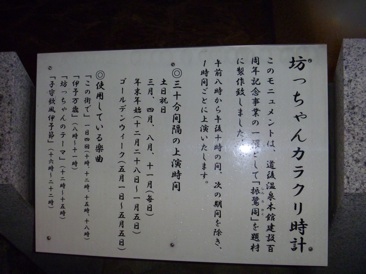 坊っちゃんカラクリ時計
このモニュメントは、道後温泉本館建設百
周年記念事業の一環として「振鷺閣」を題材
に製作致しました。
午前八時から午後十時の間、次の期間を除き、
1時間ごとに上演いたします。
◎三十分間隔の上演時間
土日祝日
三月、四月、八月、十一月(毎日)
年末年始(十二月二十八日〜一月五日)
ゴールデンウィーク(五月一日〜五月五日)
◎使用している楽曲
「この街で」
「伊予万歳」
「坊っちゃんのテーマ」
「子守歌風伊予節」